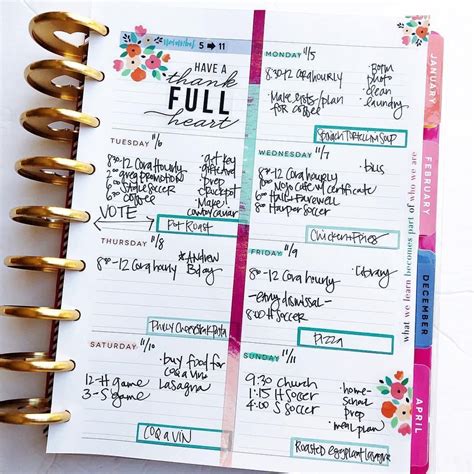 November 5 → 11
HAVE A
thank
FULL
heart
MONDAY 11/5
8:30-12 Cora hourly
· Make lists/plan
for coffee
· Room
photo
· clean
· laundry
Spinach Tortellini Soup
TUESDAY 11/6
8:30-12 Cora Hourly
2:00 greg promotions
6:00 Stole soccer
6:00 coffee
VOTE
· get key
· gift card
· prep
crockpot
· Make
cowboy caviar
Pot Roast
WEDNESDAY 11/7
8:30-12 Cora hourly
10:00 Nojo Cafe w/ certificate
6 Hall-Farewell
8 Harper Soccer
· bills
Chicken + Fries
THURSDAY 11/8
8:30-12 Cora hourly
* Andrew
B'day
Philly Cheesesteak Pasta
FRIDAY 11/9
8:30-12 Cora hourly
-early dismissal-
8:00 H Soccer
· library
PIZZA
SATURDAY 11/10
12-H game
3-S game
· buy food for
coq a vin/
lasagna
COQ a VIN
SUNDAY 11/11
9:30 Church
1:15 H Soccer
4:00 S Soccer
· home-
school
prep
· meal plan
Roasted eggplant lasagna
JANUARY
FEBRUARY
DECEMBER
APRIL
what we learn becomes part of who we are